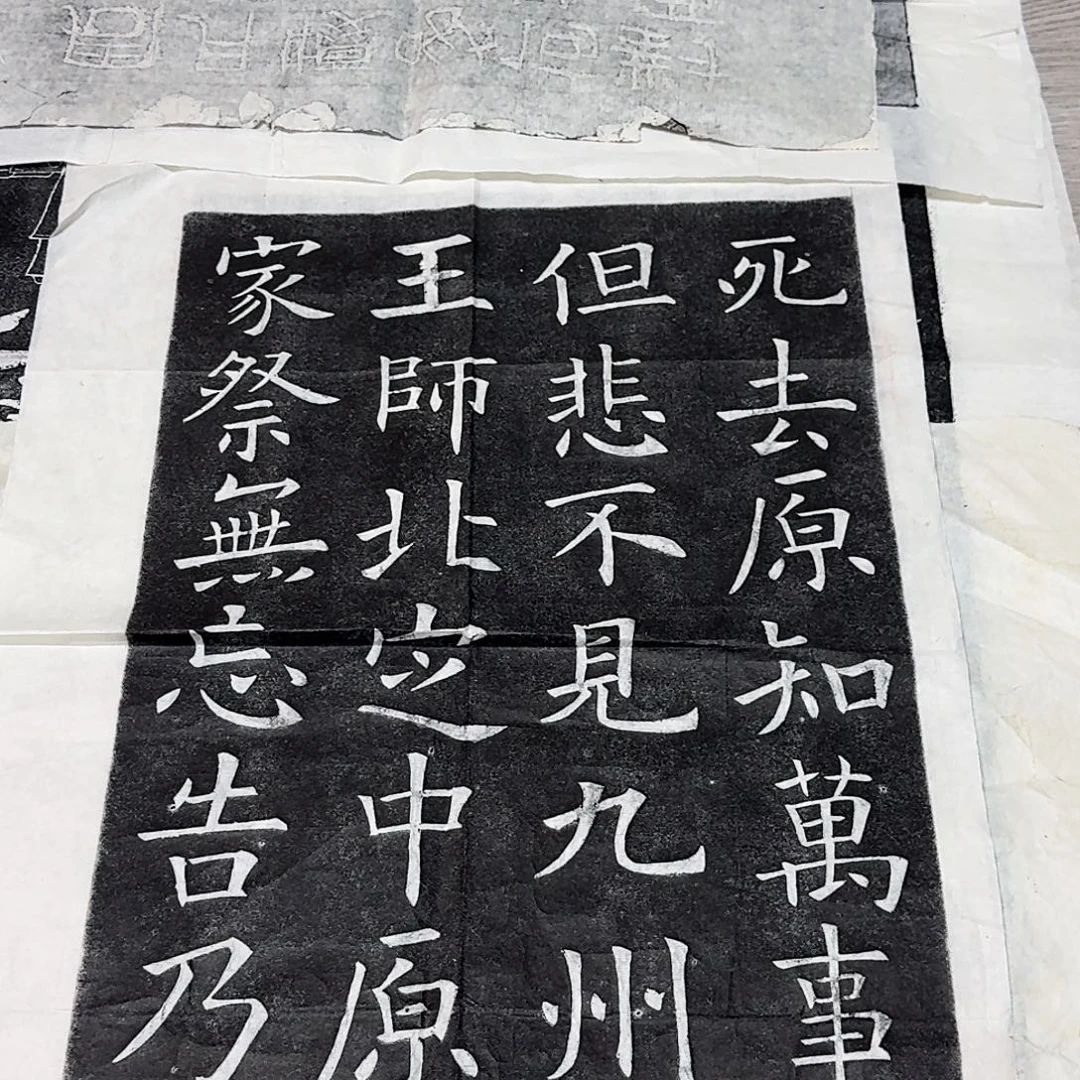 死去原知萬事
但悲不見九州
王師北定中原
家祭無忘告乃